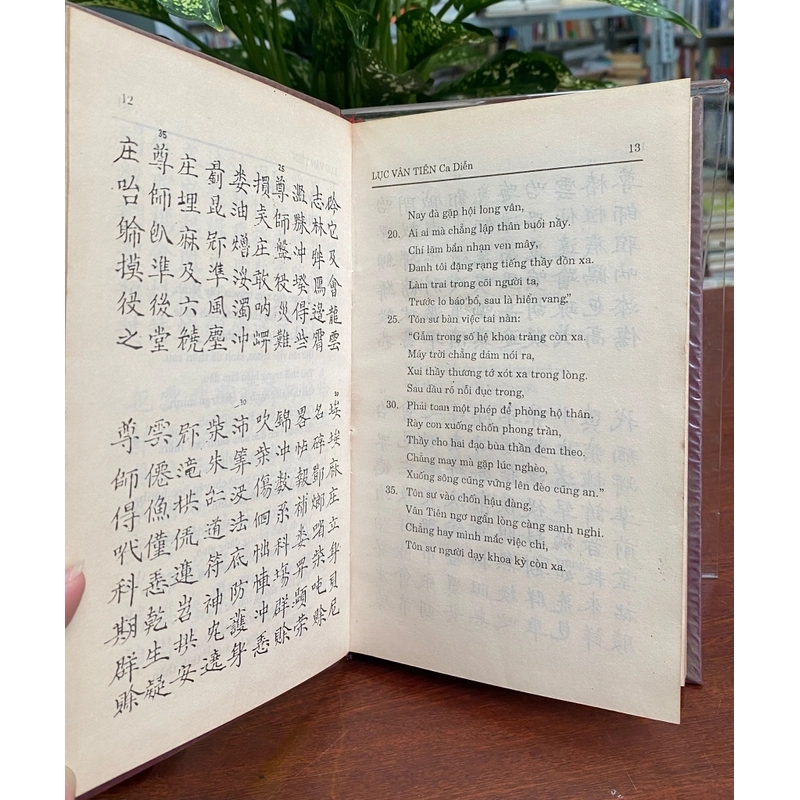 12
35
25
及會龍雲
志林
冲得些
尊師盤役災難
損庄敢呐
娄油濁冲
昆準風塵
庄埋麻及六
尊師準後堂
庄咍摸役之
30
20
埃埃麻庄立身貝尼
名碎柴吨賒
畧報補娄荣
錦冲數系科場群賒
吹柴傷冲悉
沛筭没法防護身
柴朱道符神遶
滝拱蓮拱安
雲僊僅悉乾生疑
尊師得科期群賒
13
LỤC VÂN TIÊN Ca Diễn
Nay đà gặp hội long vân,
20. Ai ai mà chẳng lập thân buổi nầy.
Chí lăm bắn nhạn ven mây,
Danh tôi đặng rạng tiếng thầy đồn xa.
Làm trai trong cõi người ta,
Trước lo báo bổ, sau là hiển vang."
25. Tôn sư bàn việc tai nàn:
"Gẫm trong số hệ khoa tràng còn xa.
Máy trời chẳng dám nói ra,
Xui thầy thương tớ xót xa trong lòng.
Sau dầu rõ nỗi đục trong,
30. Phải toan một phép để phòng hộ thân,
Rày con xuống chốn phong trần,
Thầy cho hai đạo bùa thần đem theo.
Chẳng may mà gặp lúc nghèo,
Xuống sông cũng vững lên đèo cũng an."
35. Tôn sư vào chốn hậu đàng,
Vân Tiên ngơ ngẩn lòng càng sanh nghi.
Chẳng hay mình mắc việc chi,
Tôn sư người dạy khoa kỳ còn xa.